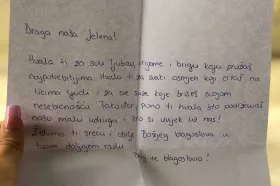 Draga naša Jelena!
Hvala ti za svu ljubav, vrijeme i brigu koju pružaš
najpotrebitijima. Hvala ti za svaki osmjeh koji crtaš na
licima ljudi i za sve suze koje brišeš svojom
nesebičnošću. Također, puno ti hvala što podržavaš
našu malu udrugu i što si uvijek uz nas!
Želimo ti sreću i obilje Božjeg blagoslova u
tvom daljnjem radu.
Bog te blagoslovio!